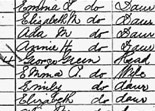 Emma L do Daur
Elizabeth M do Daur
Ada M do Daur
Annie H do Daur
George Green Head
Emma A. do Wife
Emily do daur
Elizabeth do daur